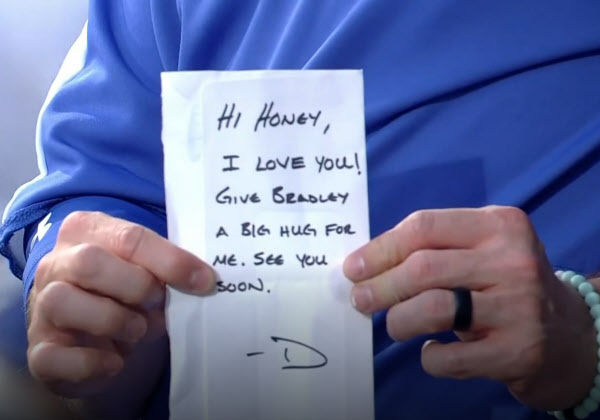 HI HONEY,
I LOVE YOU!
GIVE BRADLEY
A BIG HUG FOR
ME. SEE YOU
SOON.
-D